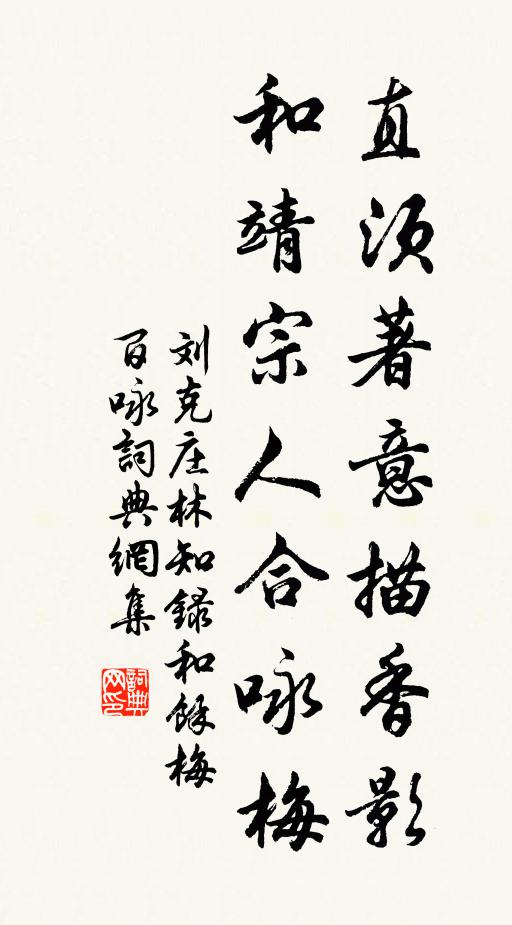 直須著意描香影
和靖宗人合咏梅
刘克庄林知錄和餘梅
百咏詞典網集
詞典网印